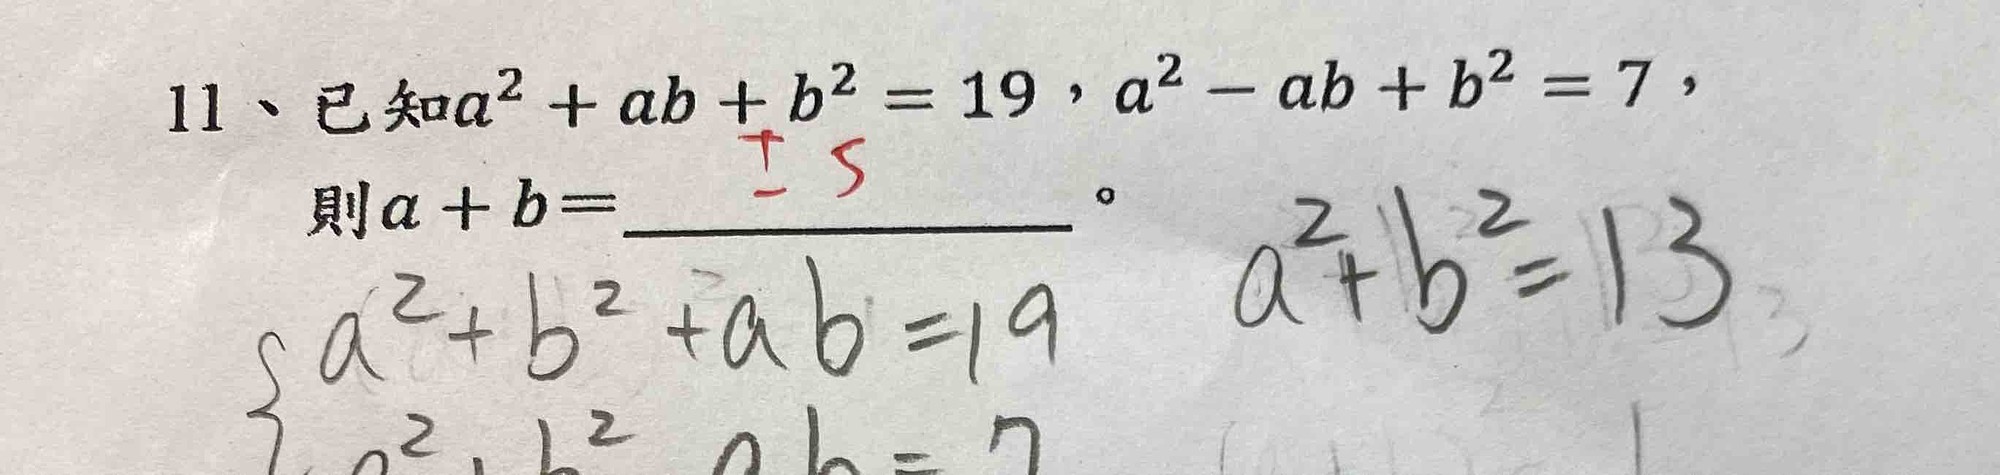 11、已知a² + ab + b² = 19，a² − ab + b² = 7，
則a + b= ± 5 。
a²+b²=13
a²+b²+ab=19
a²+b² ab=7